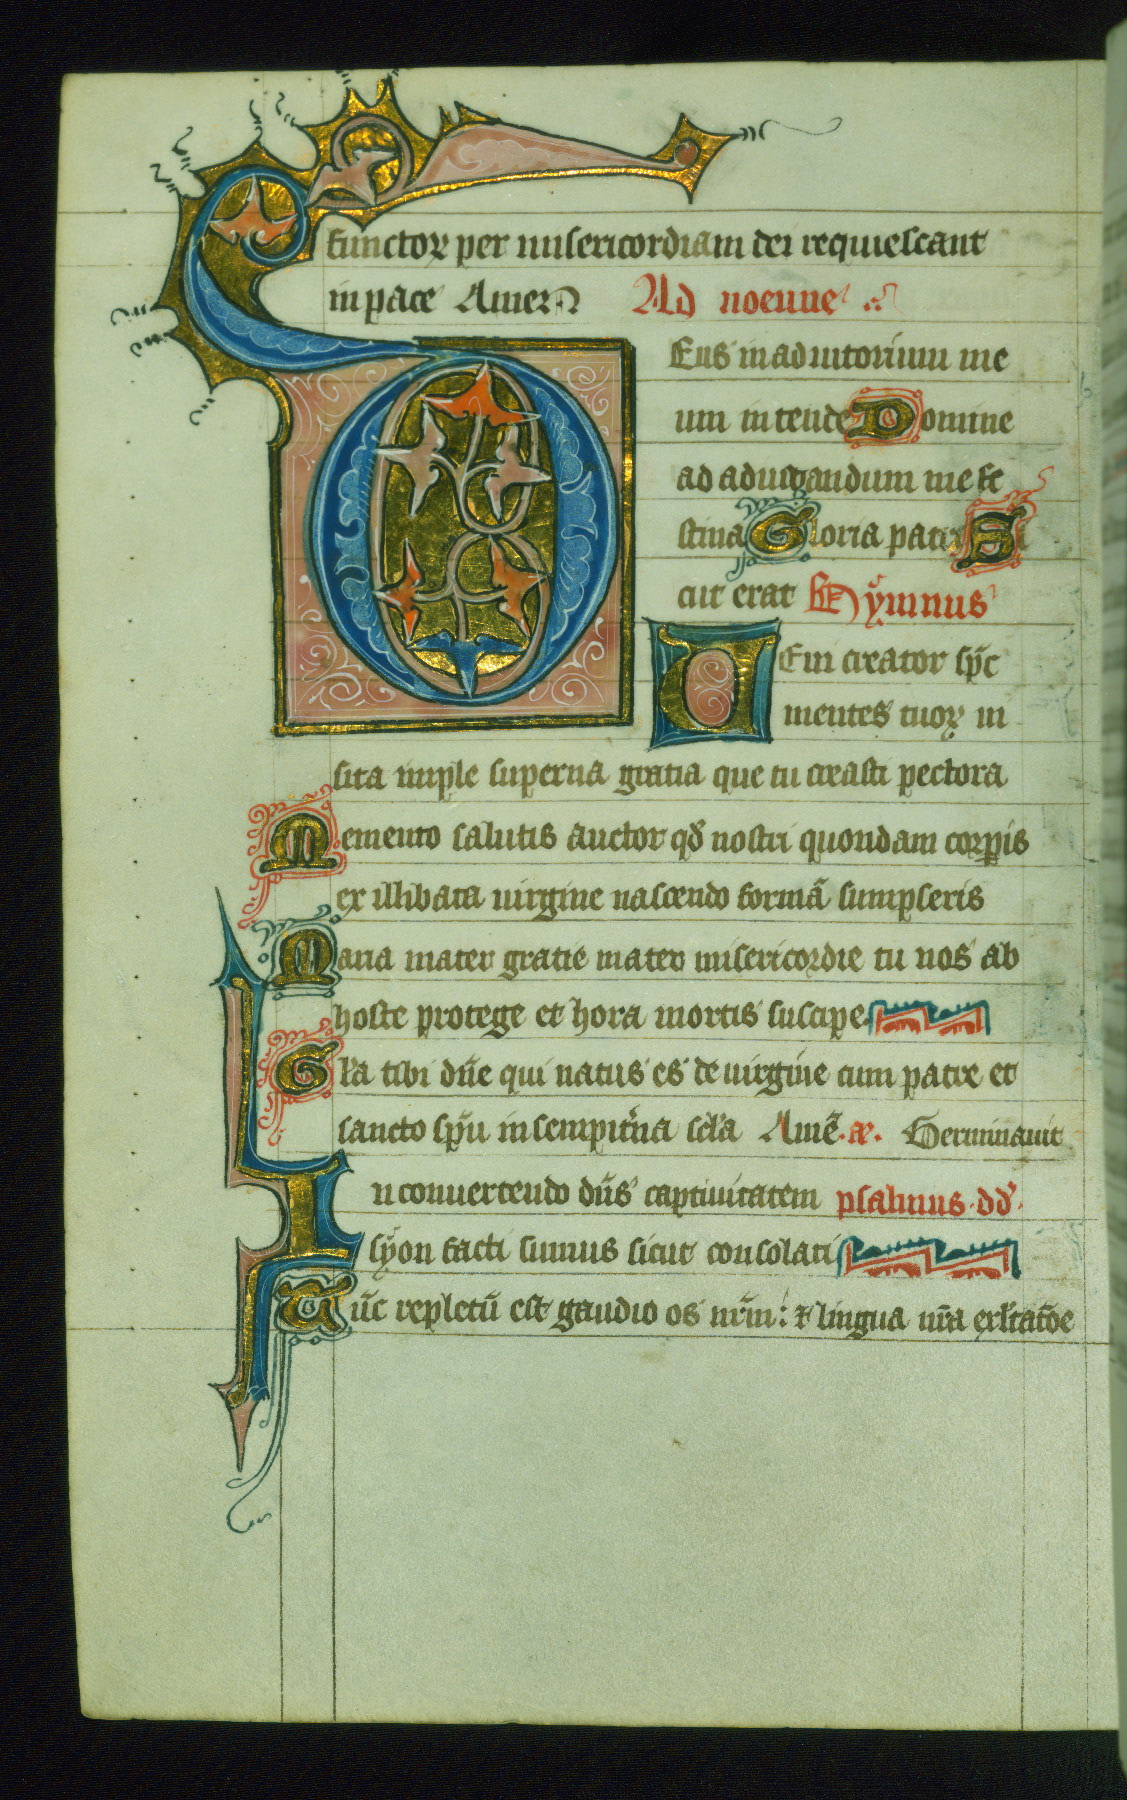 functoꝝ per misericordiam dei requiescant
in pace Amen Ad noenne
Deus in adiutorium me
um intende Domine
ad adiuuandum me fe
stina Gloria patri Si
cut erat Hymnus
Ueni creator sp̄c
mentes tuoꝝ ui
sita imple superna gratia que tu creasti pectora
Memento salutis auctor qd̄ nostri quondam corꝑis
ex illibata uirgine nascendo formā sumpseris
Maria mater gratie mater misericordie tu nos ab
hoste protege et hora mortis suscipe
Gl̄a tibi dn̄e qui natus es de uirgine cum patre et
sancto sp̄u in sempit̄na sc̄la Amē. æ. Germinauit
In conuertendo dn̄s captiuitatem psalmus. dd̄.
syon facti sumus sicut consolati
Tūc repletū est gaudio os nr̄m: ⁊ lingua nr̄a exl̄tatōe